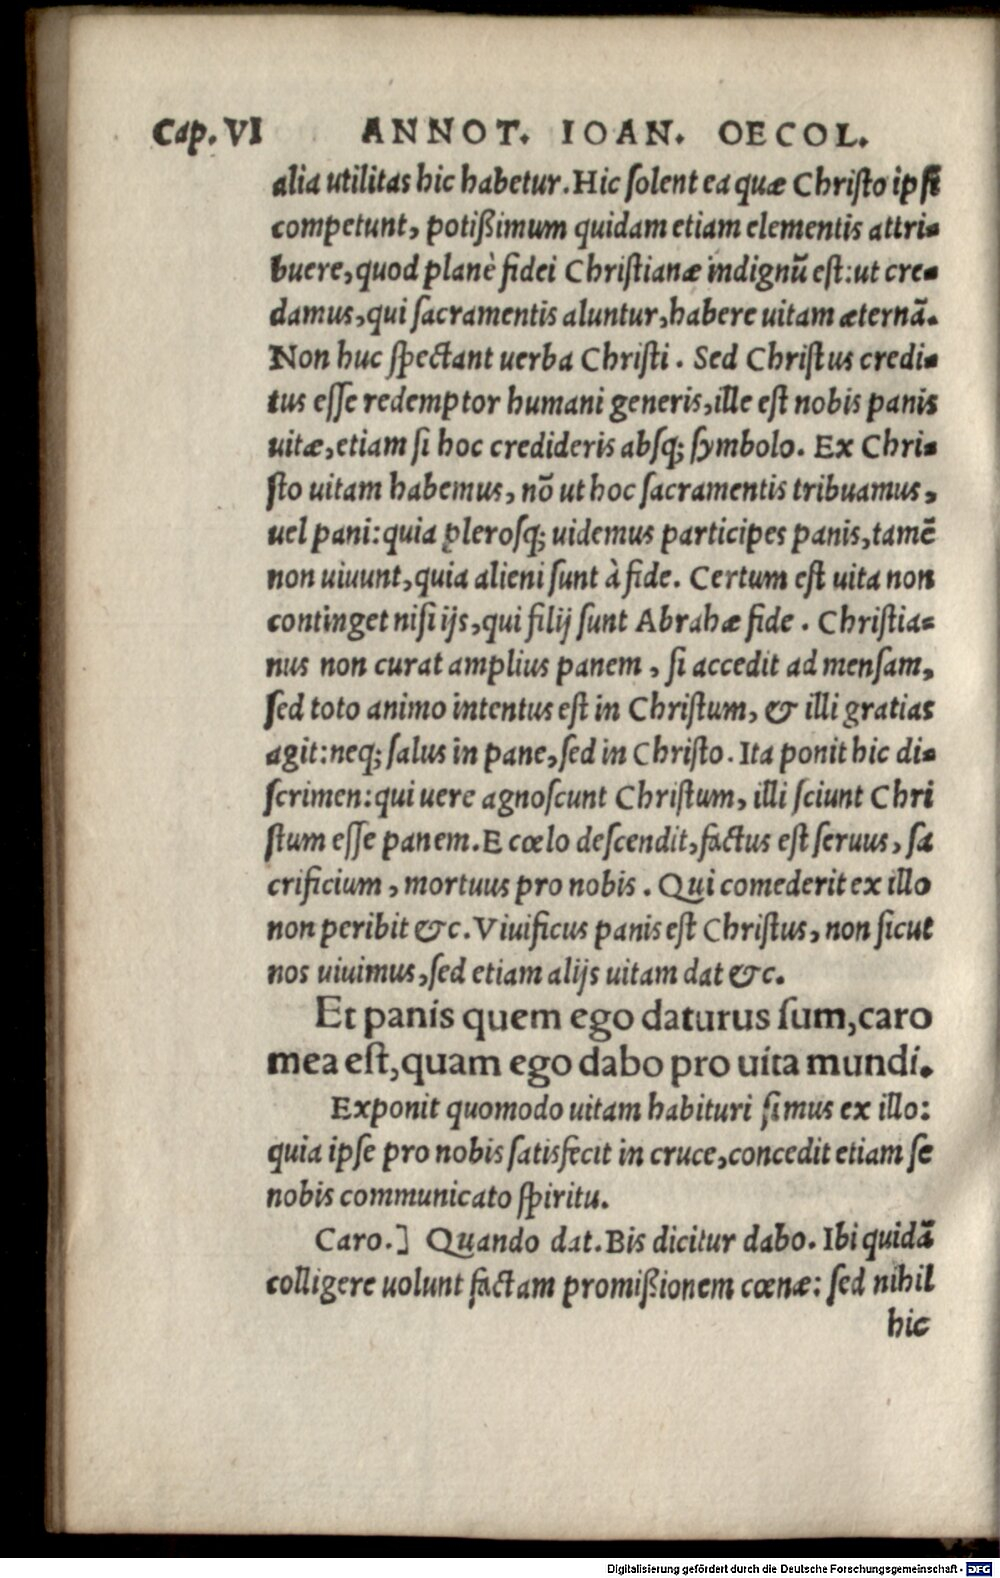 Cap. VI ANNOT. IOAN. OECOL.
alia utilitas hic habetur. Hic ſolent ea quæ Chriſto ipſi
competunt, potißimum quidam etiam elementis attri-
buere, quod planè fidei Chriſtianæ indignũ eſt: ut cre-
damus, qui ſacramentis aluntur, habere uitam æternã.
Non huc ſpectant uerba Chriſti. Sed Chriſtus credi-
tus eſſe redemptor humani generis, ille eſt nobis panis
uitæ, etiam ſi hoc credideris abſq; ſymbolo. Ex Chri-
ſto uitam habemus, nõ ut hoc ſacramentis tribuamus,
uel pani: quia pleroſq; uidemus participes panis, tamẽ
non uiuunt, quia alieni ſunt à fide. Certum eſt uita non
continget niſi ijs, qui filij ſunt Abrahæ fide. Chriſtia-
nus non curat amplius panem, ſi accedit ad menſam,
ſed toto animo intentus eſt in Chriſtum, & illi gratias
agit: neq; ſalus in pane, ſed in Chriſto. Ita ponit hic di-
ſcrimen: qui uere agnoſcunt Chriſtum, illi ſciunt Chri
ſtum eſſe panem. E cœlo deſcendit, factus eſt ſeruus, ſa
crificium, mortuus pro nobis. Qui comederit ex illo
non peribit &c. Viuificus panis eſt Chriſtus, non ſicut
nos uiuimus, ſed etiam alijs uitam dat &c.
Et panis quem ego daturus ſum, caro
mea eſt, quam ego dabo pro uita mundi.
Exponit quomodo uitam habituri ſimus ex illo:
quia ipſe pro nobis ſatisfecit in cruce, concedit etiam ſe
nobis communicato ſpiritu.
Caro.] Quando dat. Bis dicitur dabo. Ibi quidã
colligere uolunt factam promißionem cœnæ: ſed nihil
hic
Digitalisierung gefördert durch die Deutsche Forschungsgemeinschaft - DFG